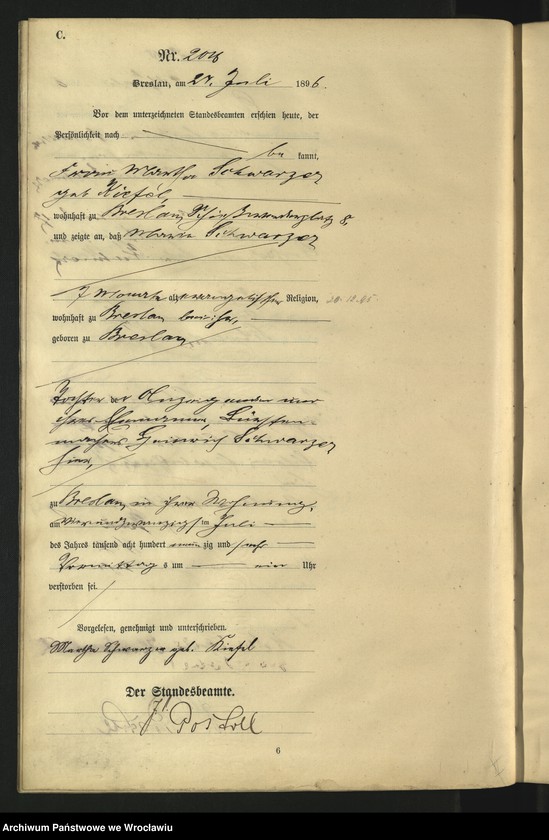 C.
Nr.
Breslau, am Juli 1896.
Vor dem unterzeichneten Standesbeamten erschien heute, der
Persönlichkeit nach
be kannt,
Frau Martha Schwarzer
geb. Kiesel,
wohnhaft zu Breslau,
und zeigte an, daß Maria Schwarzer
7 Monate alt, evangelischer Religion,
wohnhaft zu Breslau bei ihr,
geboren zu Breslau,
Tochter der Anzeigenden und
ihres Ehemannes, Bürsten-
machers Heinrich Schwarzer
hier,
zu Breslau, in ihrer Wohnung,
am vierundzwanzigsten Juli
des Jahres tausend acht hundert neun zig und sechs
Vormittag s um Uhr
verstorben sei.
Vorgelesen, genehmigt und unterschrieben.
Martha Schwarzer geb. Kiesel
Der Standesbeamte.
6
Archiwum Państwowe we Wrocławiu